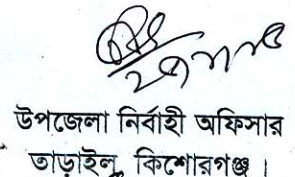 উপজেলা নির্বাহী অফিসার
তাড়াইল, কিশোরগঞ্জ।